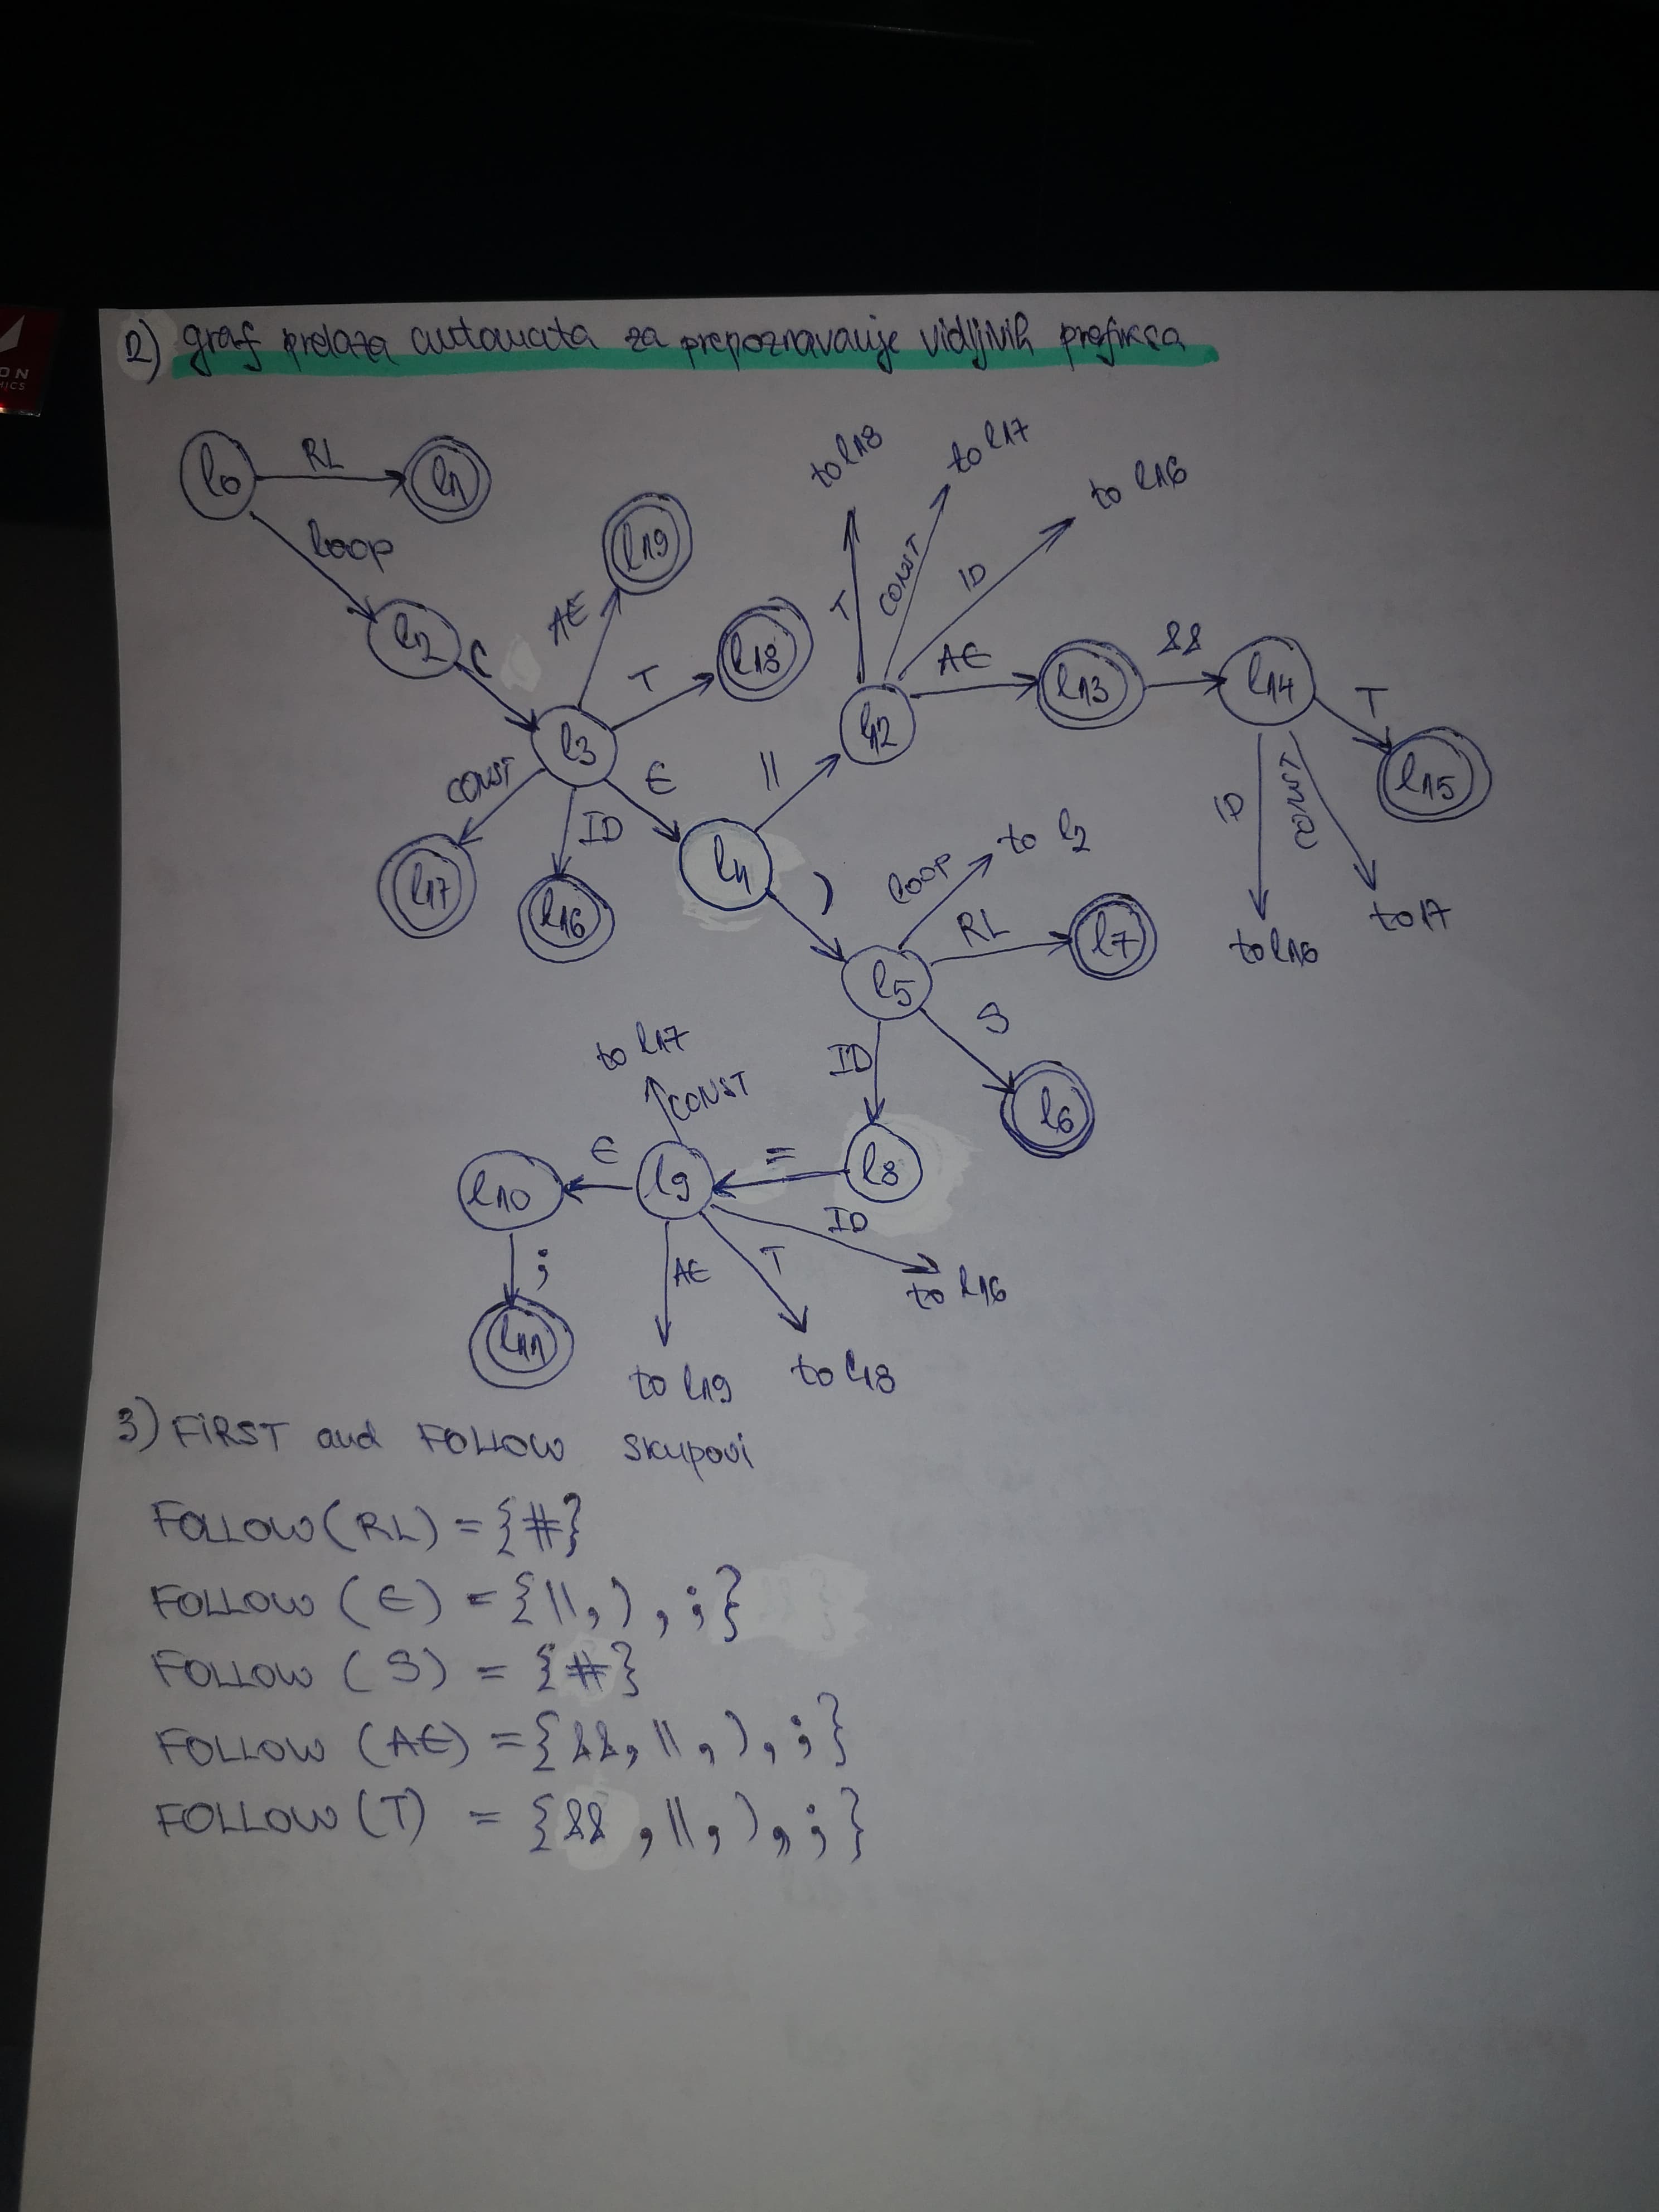 ON
MICS
2) graf prelaza automata za prepoznavanje vidljivih prefiksa
l0 RL l1
loop
l2 (
l3
AE l19
T l18
CONST l17
ID l16
E l4
|| l12
T to l18
CONST to l17
ID to l16
AE l13 && l14 T l15
ID to l16
CONST to 17
) l5
loop to l2
RL l7
S l6
ID l8
= l9
CONST to l17
E l10
; l11
AE to l19
T to l18
ID to l16
3) FIRST and FOLLOW skupovi
FOLLOW (RL) = {#}
FOLLOW (E) = {||, ) , ;}
FOLLOW (S) = {#}
FOLLOW (AE) = {&&, || , ) , ;}
FOLLOW (T) = {&& , || , ) , ; }